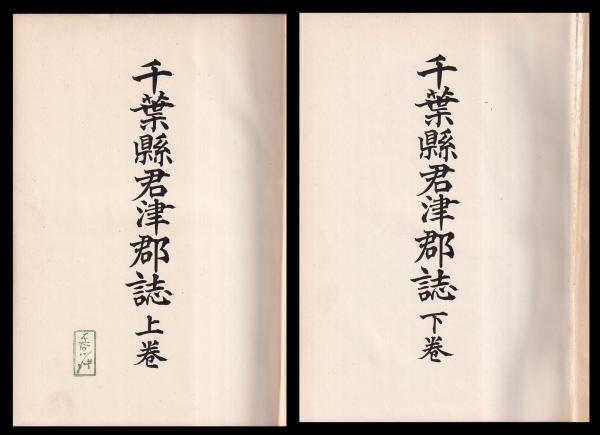 千葉縣君津郡誌 上卷
千葉縣君津郡誌 下卷